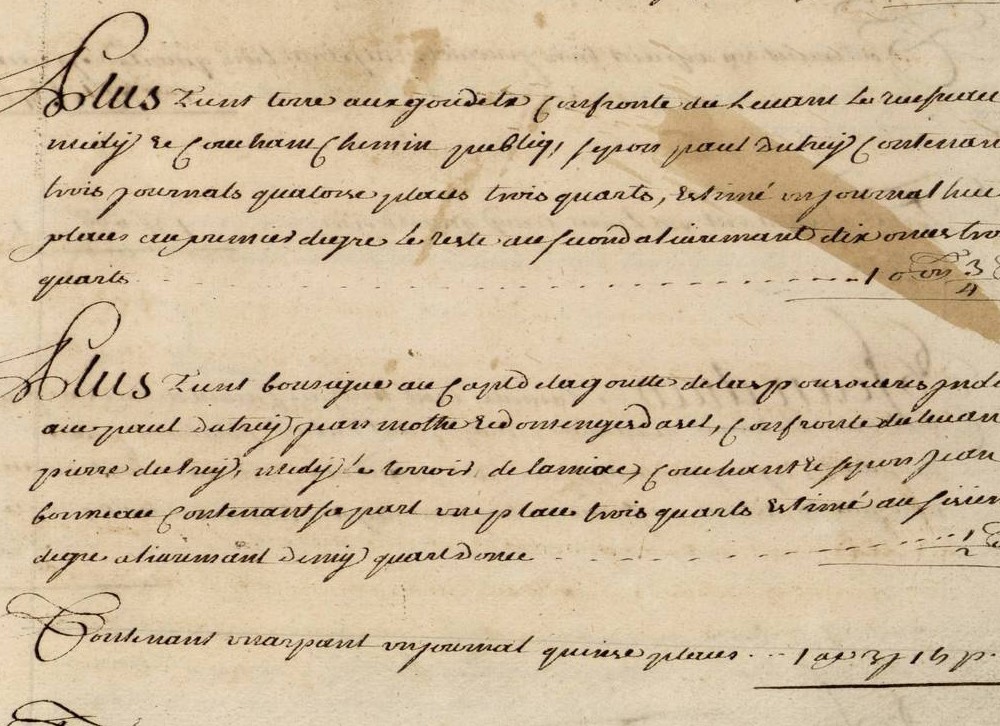 Plus Tient terre aux goudetx Confronte du Leuant Le ruisseau
midy Et Couchant Chemin publiq, septon paul dutrey Contenant
trois journals quatorse places trois quarts, Estimé un journal huit
places au premier degre Le Reste au second aliurement dix onces trois
quarts 10 on 3/4
Plus Tient bousigue au Cap de lagoutte de las
auec paul dutrey jean mothe Et Confronte du leuant
pierre dutrey, midy le terroir de Couchant Et septon Jean
Contenant sa part une place trois quarts Estimé au
degre aliurement demy quart donce 1/2
Contenant un arpant un journal quinse places 1 ar 3j 15 p.